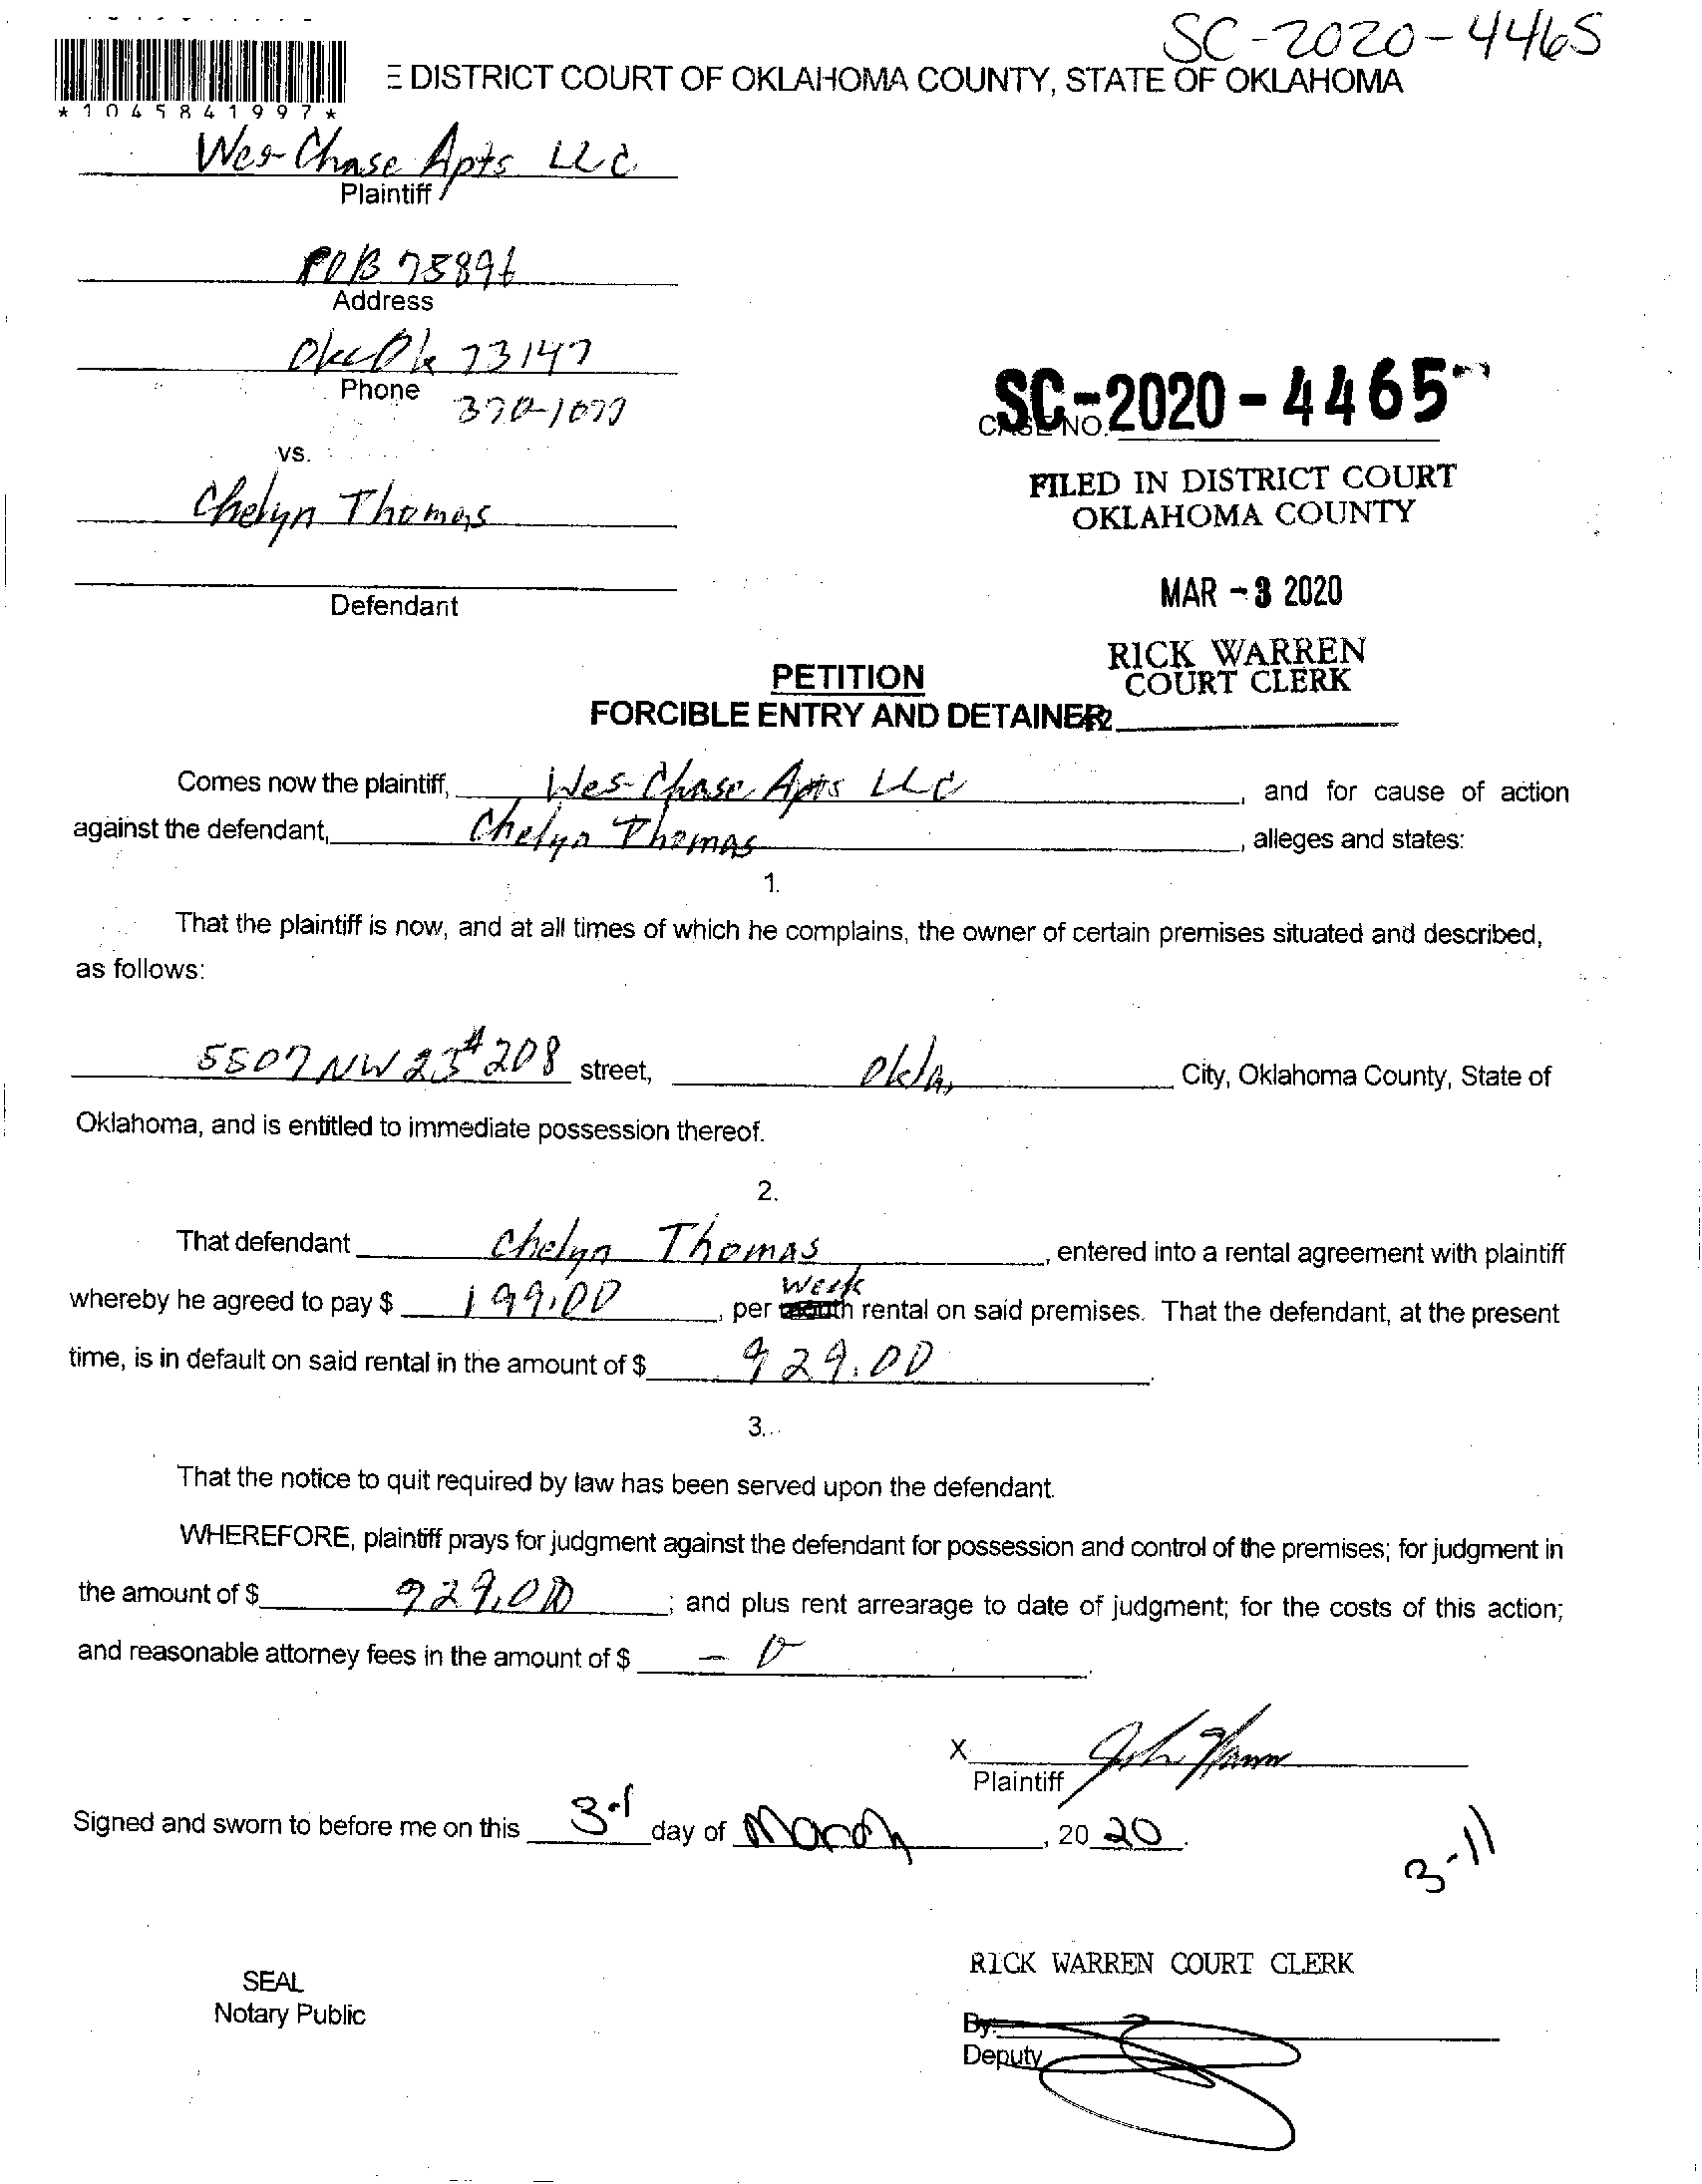 SC-2020-4465
*1045841997*
E DISTRICT COURT OF OKLAHOMA COUNTY, STATE OF OKLAHOMA
Wes-Chase Apts LLC
Plaintiff
POB 75896
Address
Okc Ok 73147
Phone
370-1077
SC-2020-4465
CASE NO.
vs.
Chelyn Thomas
FILED IN DISTRICT COURT
OKLAHOMA COUNTY
Defendant
MAR -3 2020
RICK WARREN
COURT CLERK
PETITION
FORCIBLE ENTRY AND DETAINER
Comes now the plaintiff, Wes-Chase Apts LLC, and for cause of action
against the defendant, Chelyn Thomas, alleges and states:
1.
That the plaintiff is now, and at all times of which he complains, the owner of certain premises situated and described,
as follows:
5507 NW 23 #208 street, Okla, City, Oklahoma County, State of
Oklahoma, and is entitled to immediate possession thereof.
2.
That defendant Chelyn Thomas, entered into a rental agreement with plaintiff
week
whereby he agreed to pay $ 199.00, per month rental on said premises. That the defendant, at the present
time, is in default on said rental in the amount of $ 929.00.
3.
That the notice to quit required by law has been served upon the defendant.
WHEREFORE, plaintiff prays for judgment against the defendant for possession and control of the premises; for judgment in
the amount of $ 929.00; and plus rent arrearage to date of judgment; for the costs of this action;
and reasonable attorney fees in the amount of $ - 0.
X
Plaintiff
Signed and sworn to before me on this 3rd day of March, 20 20.
3-11
RICK WARREN COURT CLERK
SEAL
Notary Public
By:
Deputy